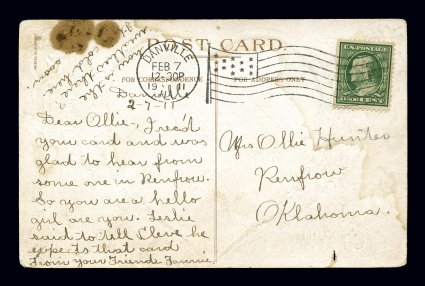 POST CARD.
FOR CORRESPONDENCE
FOR ADDRESS ONLY
DANVILLE
FEB 7
12-30P
1911
ILL.
U.S. POSTAGE
ONE CENT
Danville
2-7-11
Dear Ollie-, I rec'd
your card and was
glad to hear from
some one in Renfrow.
So you are a hello
girl are you. Leslie
said to tell Cleve he
expects that card
From your Friend Fannie
Mrs Ollie Hunter
Renfrow
Oklahoma.
weather is the
cold here
soon.